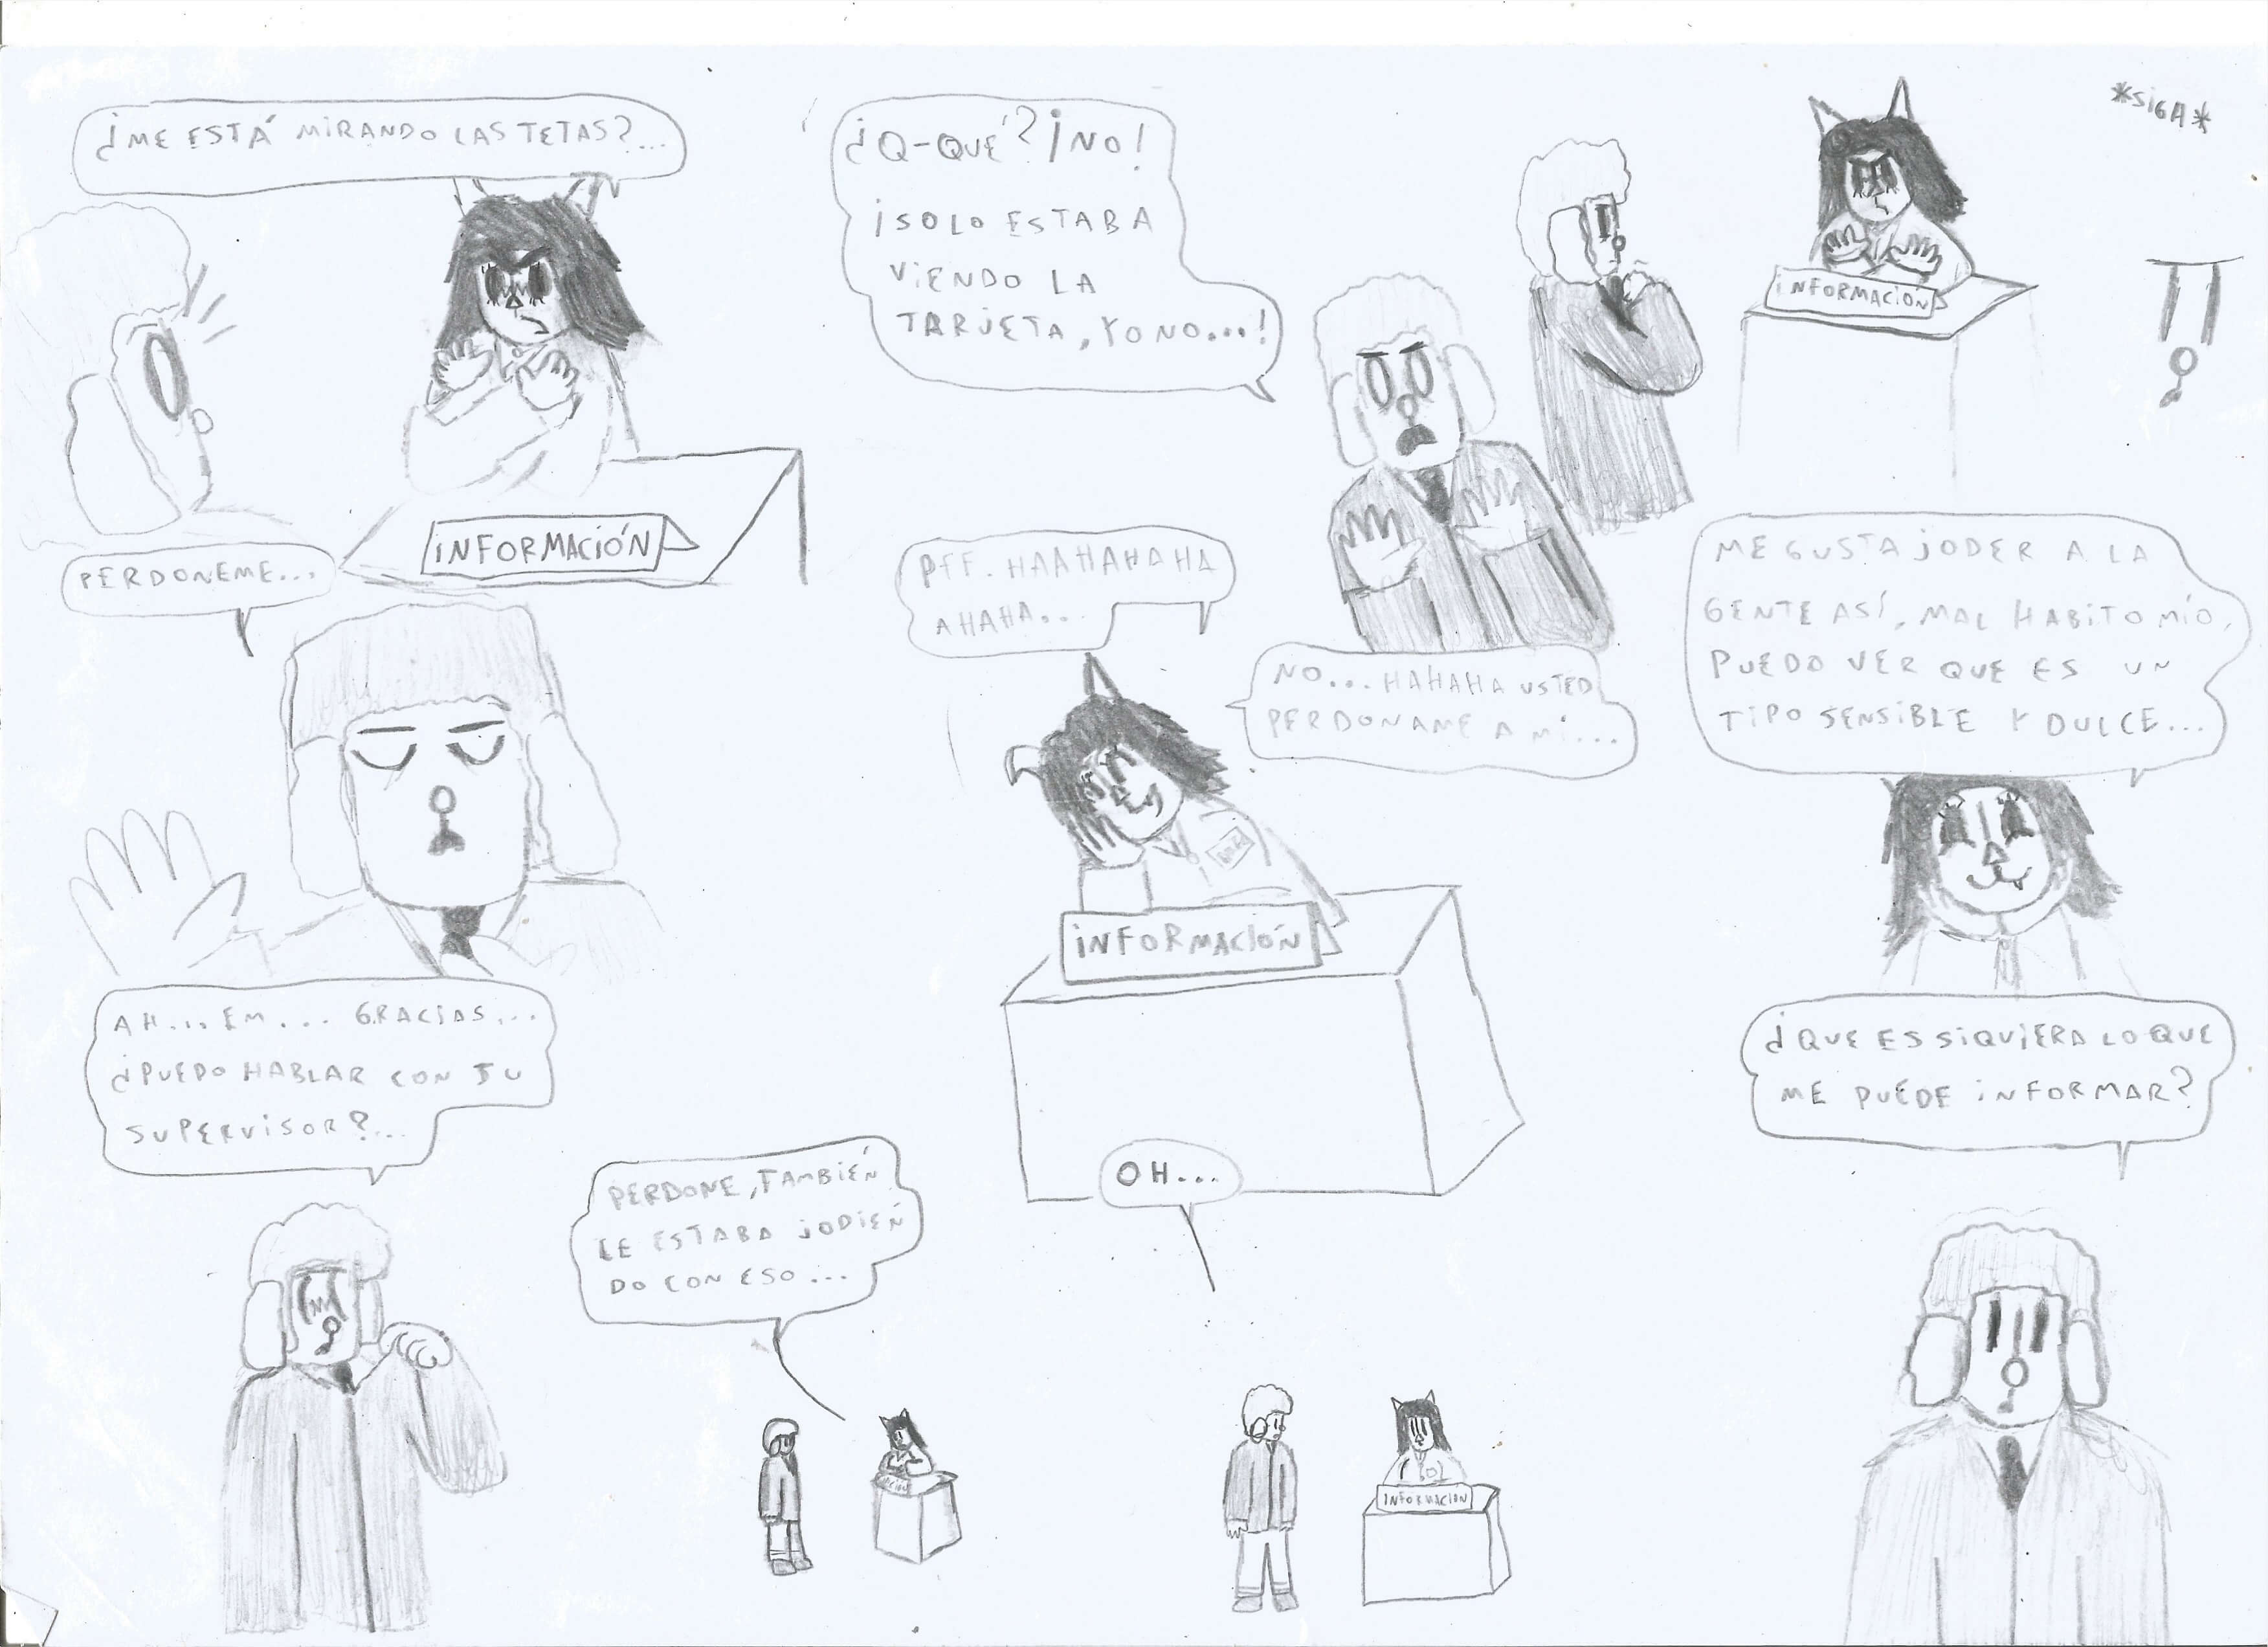 ¿ME ESTÁ MIRANDO LAS TETAS?...
INFORMACIÓN
¿Q-QUÉ? ¡NO!
¡SOLO ESTABA
VIENDO LA
TARJETA, YO NO...!
INFORMACIÓN
*SIGA*
PERDONEME...
PFF. HAAHAHAHA
AHAHA...
NO... HAHAHA USTED
PERDONAME A MI...
INFORMACIÓN
ME GUSTA JODER A LA
GENTE ASÍ, MAL HABITO MÍO,
PUEDO VER QUE ES UN
TIPO SENSIBLE Y DULCE...
AH... EM... GRACIAS...
¿PUEDO HABLAR CON TU
SUPERVISOR?...
PERDONE, TAMBIÉN
LE ESTABA JODIEN
DO CON ESO...
OH...
INFORMACIÓN
¿QUE ES SIQUIERA LO QUE
ME PUEDE INFORMAR?